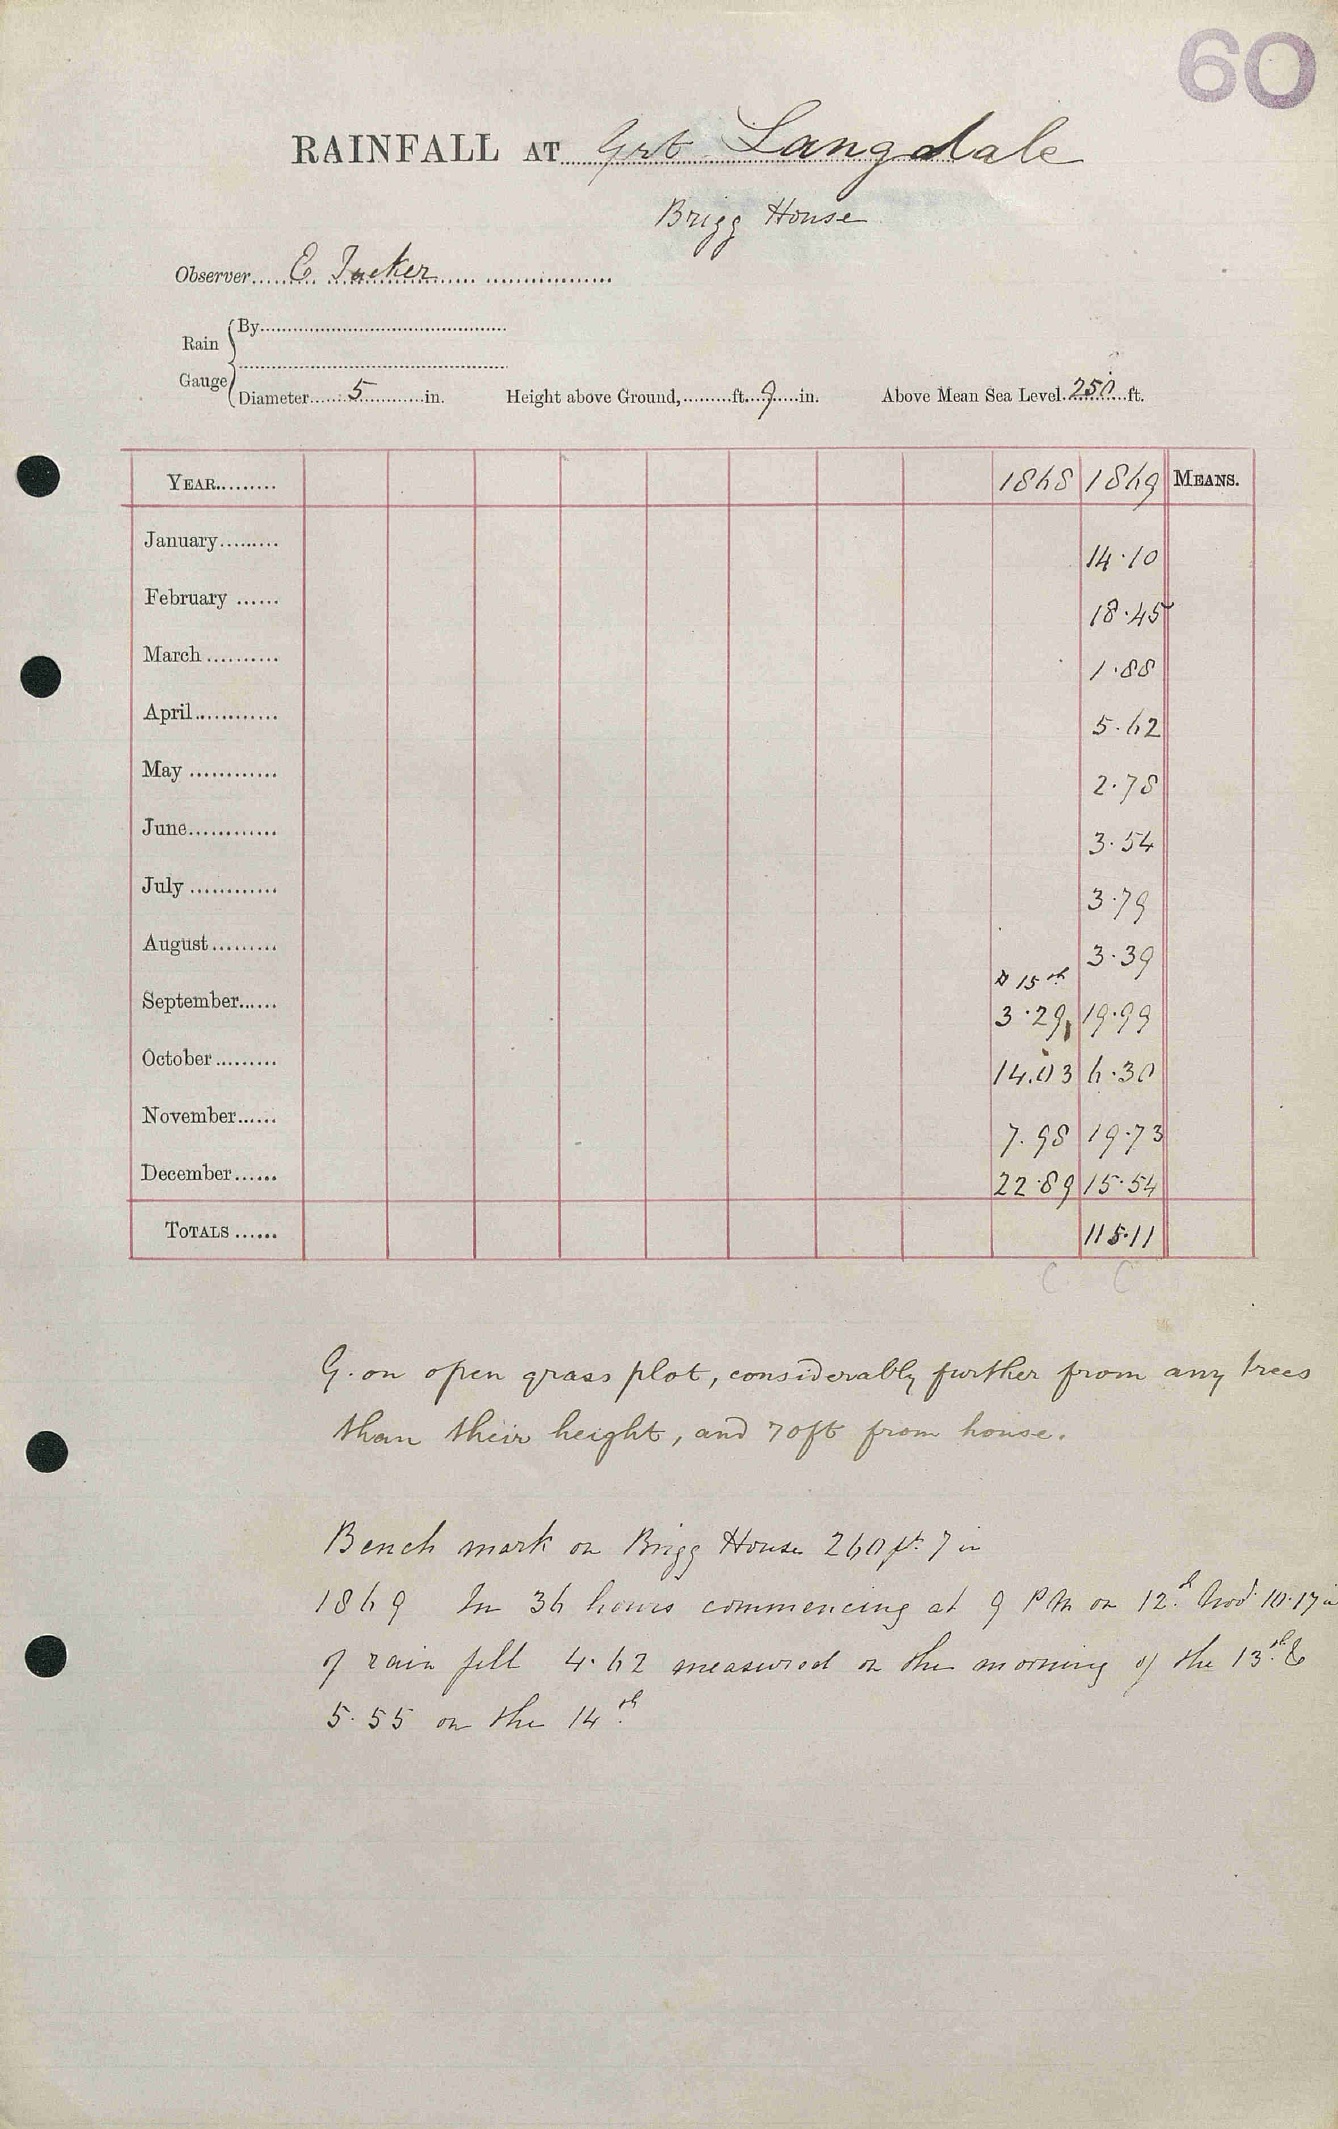 60
RAINFALL AT Grt Langdale
Brigg House
Observer E Tucker
Rain Gauge
By
Diameter 5 in. Height above Ground, ft. 9 in. Above Mean Sea Level 250 ft.
YEAR 1868 1869 MEANS.
January 14.10
February 18.45
March 1.88
April 5.62
May 2.78
June 3.54
July 3.79
August 3.39
15th
September 3.29 19.99
October 14.03 6.30
November 7.98 19.73
December 22.89 15.54
TOTALS 115.11
C C
G. on open grass plot, considerably further from any trees
than their height, and 70ft from house.
Bench mark on Brigg House 260 ft. 7 in
1869 In 36 hours commencing at 9 PM on 12th Nov 10.17 in
of rain fell 4.62 measured on the morning of the 13th &
5.55 on the 14th